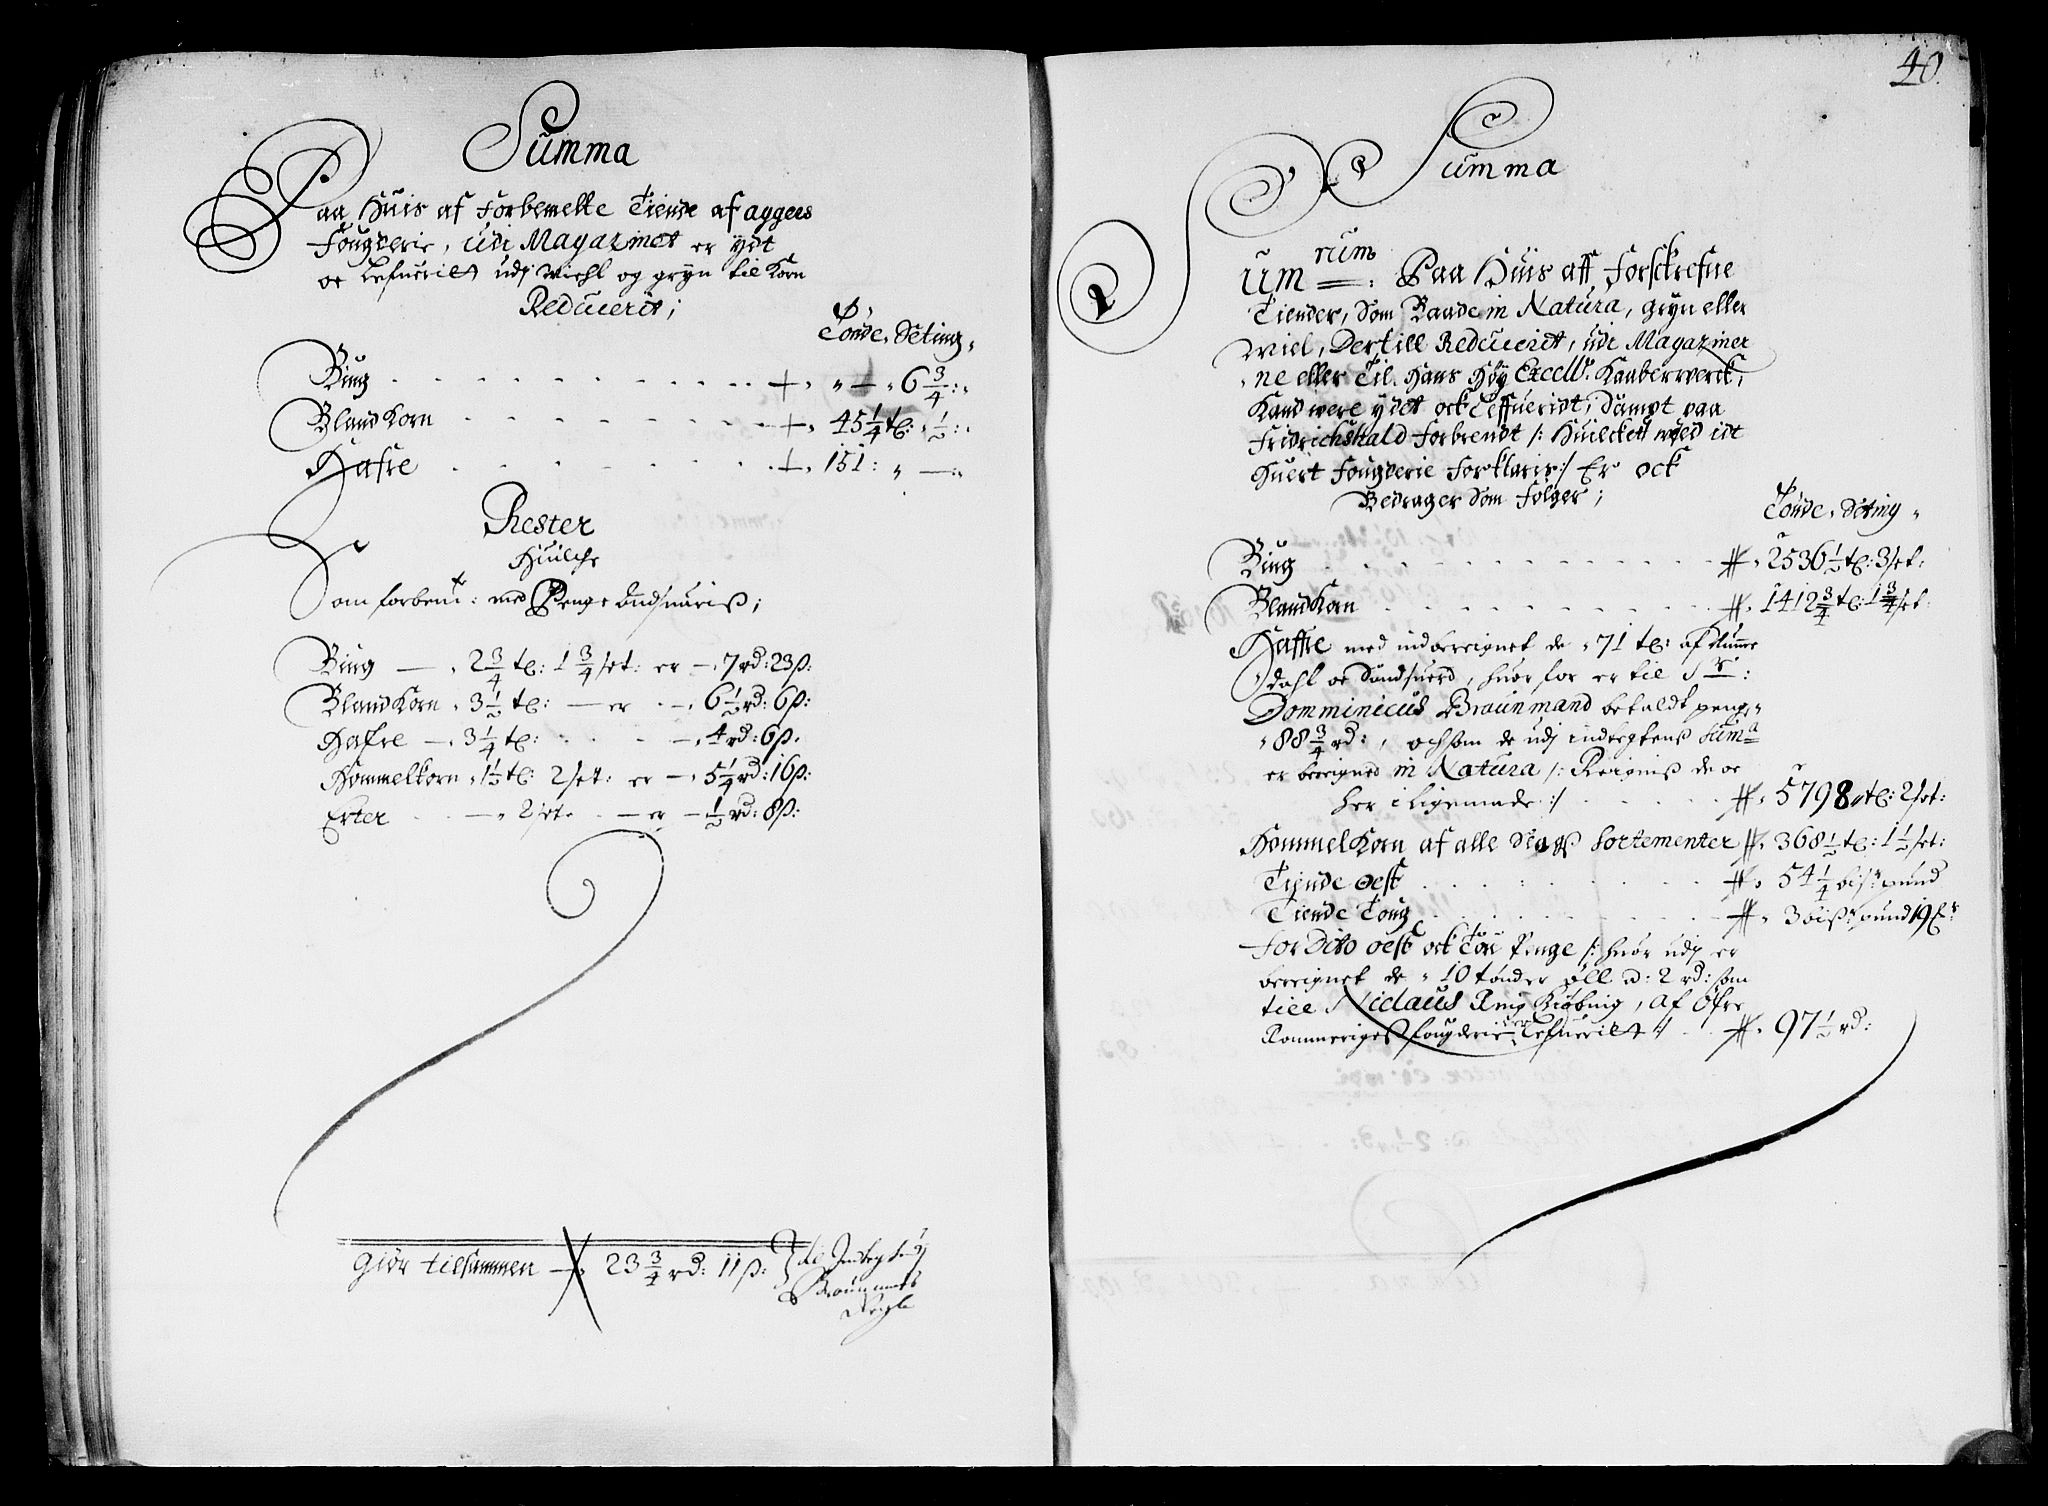 Summa
Paa Huis af Forbemelte Tiende af aggers
Fougderie, udi Magazinet er ydt
oc Lefuerit udj Miehl og gryn til Korn
Reducerit;
Tønde, Seting,
Biug + " — " 6 3/4 :"
Bland Korn + 45 1/4 tr: " 1/2 :"
Hafre + 151 : " — :"
Rester
Huilche
Som forbemt: med Penge
Biug — 2 3/4 tr: 1 3/4 set: er — 7 rd: 23 ß:
Bland Korn 3 1/2 tr: — er — 6 1/2 rd: 6 ß:
Hafre — 3 1/4 tr: — 4 rd: 6 ß.
Hommelkorn 1 1/2 tr: 2 set: er — 5 1/4 rd: 16 ß:
Erter — 2 set. — er — 1/2 rd: 8 ß:
Giør tilsammen — 23 3/4 rd: 11 ß:
40.
Summa
Summarum
: Paa Huis aff forschrefne
Tiender, som Baade in Natura, gryn eller
Miel, Dertill Reducerit, udi Magaziner
ne eller Til. Hans Høy Excell. Kaaberwerck,
Kand were ydet ock Leffueridt, sampt paa
Fridrichshald forbrendt /: Huilcket wed idt
huert Fougderie forklaris :/ Er ock
Bedrager som følger;
Tønde, Seting,
Biug 2536 1/2 tr: 3 set:
Bland Korn 1412 3/4 tr: 1 3/4 set:
Haffre med indbereignet de 71 tr: af Numme
dahl oc Sandsuerd, huor for er til Sr:
Domminicus Braunmand betaldt penge
88 3/4 rd:, ochsom de udj indtegtens suma
er bereigned in Natura /: Reigniß de oc
her i ligemaade :/ 5798 tr: 2 set:
Hommel Korn af alle slags sortementer 368 1/2 tr: 1 1/2 set:
Tiende Oest 54 1/4 biß pund
Tiende Toug 3 biß pund 19
for Dito oest ock Penge /: huor udj er
bereignet de 10 tønder øll a: 2 rd: som
till Niclaus af Øfre
Rommeriges fougderie er Lefuerit :/ 97 1/2 rd: